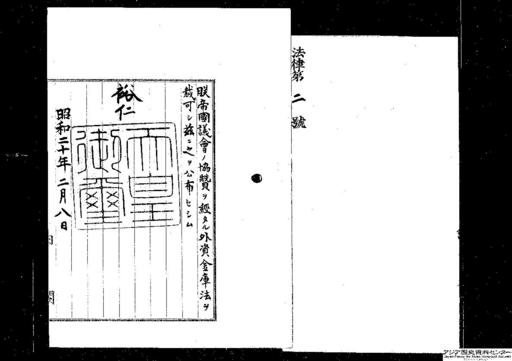 法律第二號
朕帝國議會ノ協贊ヲ經タル外資金庫法ヲ
裁可シ茲ニ之ヲ公布セシム
裕仁
天皇御璽
昭和二十年二月八日
アジア歴史資料センター